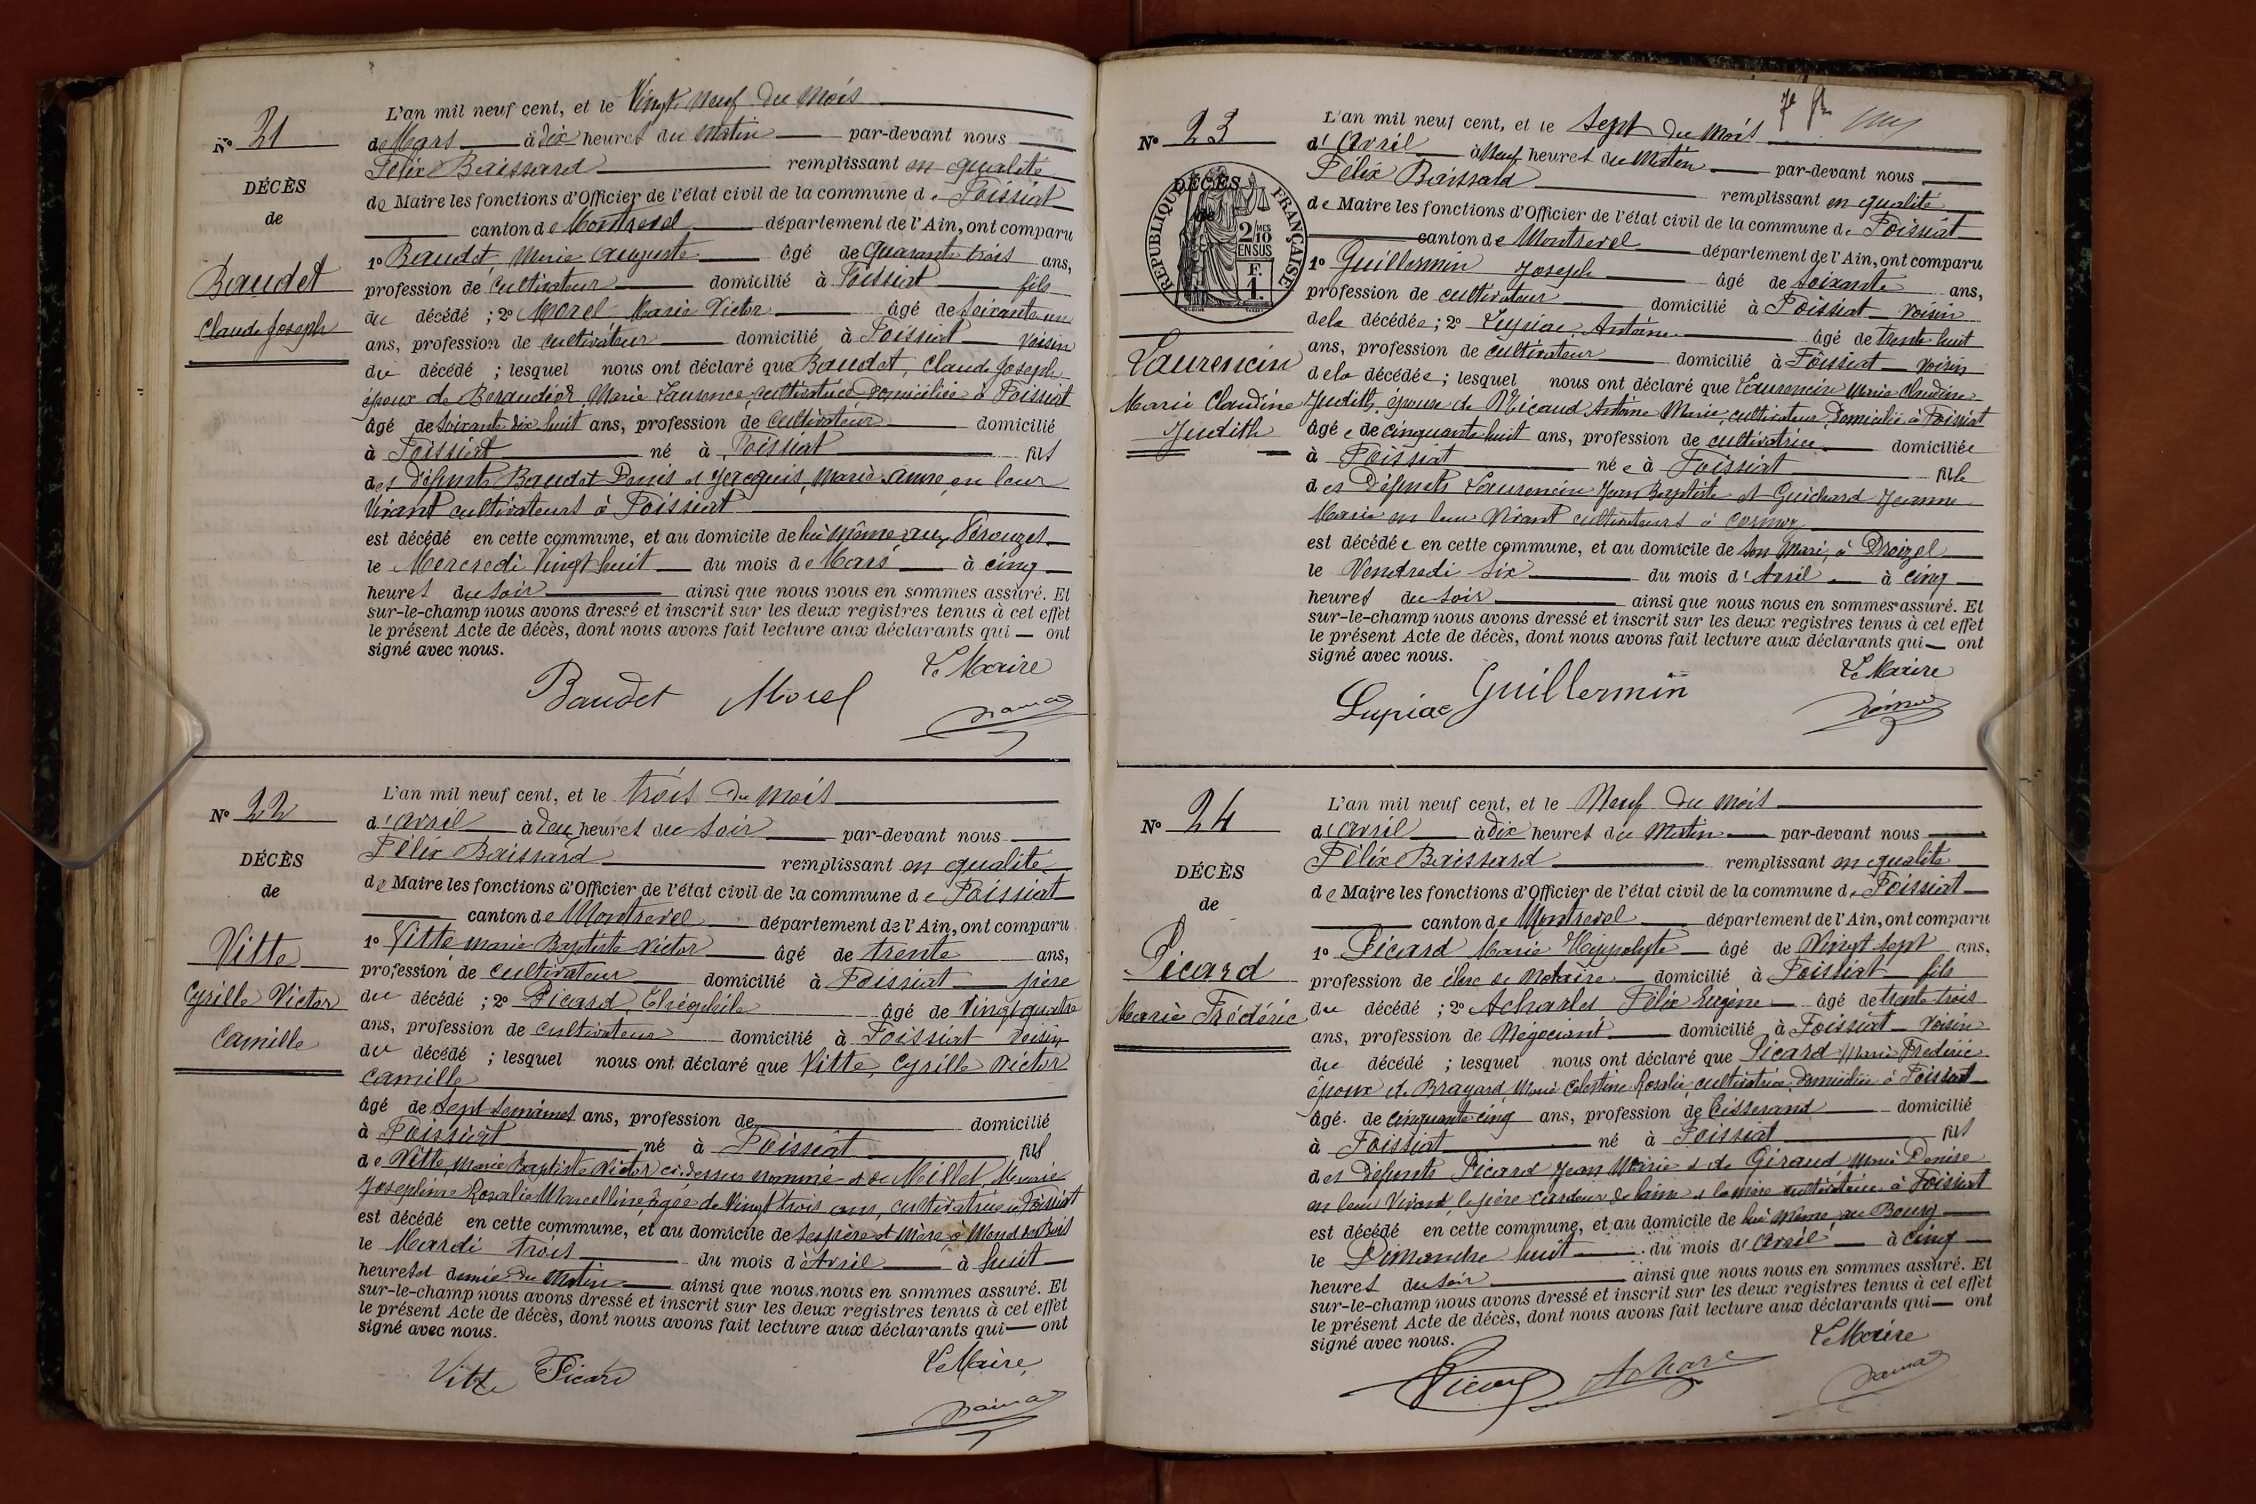 L'an mil neuf cent, et le Vingt neuf du mois
N° 21
de Mars à dix heures du matin par-devant nous
Félix Baissard remplissant en qualité
DÉCÈS
de Maire les fonctions d'Officier de l'état civil de la commune de Foissiat
de
canton de Montrevel département de l'Ain, ont comparu
1° Baudet Marie Auguste âgé de quarante trois ans,
Baudet
profession de cultivateur domicilié à Foissiat fils
du décédé ; 2° Morel Marie Victor âgé de soixante un
Claude Joseph
ans, profession de cultivateur domicilié à Foissiat voisin
du décédé ; lesquel nous ont déclaré que Baudet, Claude Joseph
époux de Beraudier Marie Laurence, cultivatrice domiciliée à Foissiat
âgé de soixante dix huit ans, profession de cultivateur domicilié
à Foissiat né à Foissiat fils
des défunts Baudet Denis et Marie Anne, en leur
vivant cultivateurs à Foissiat
est décédé en cette commune, et au domicile de lui même aux
le Mercredi Vingt huit du mois de Mars à cinq
heures du soir ainsi que nous nous en sommes assuré. Et
sur-le-champ nous avons dressé et inscrit sur les deux registres tenus à cet effet
le présent Acte de décès, dont nous avons fait lecture aux déclarants qui ont
signé avec nous.
Le Maire
Baudet Morel
L'an mil neuf cent, et le trois du mois
N° 22
d'avril à deux heures du soir par-devant nous
Félix Baissard remplissant en qualité
DÉCÈS
de Maire les fonctions d'Officier de l'état civil de la commune de Foissiat
de
canton de Montrevel département de l'Ain, ont comparu
1° Vitte Marie Baptiste Victor âgé de trente ans,
Vitte
profession de cultivateur domicilié à Foissiat père
Cyrille Victor
du décédé ; 2° Picard Théophile âgé de Vingt quatre
ans, profession de cultivateur domicilié à Foissiat voisin
Camille
du décédé ; lesquel nous ont déclaré que Vitte, Cyrille Victor
Camille
âgé de sept semaines ans, profession de domicilié
à Foissiat né à Foissiat fils
de Vitte, Marie Baptiste Victor ci-dessus nommé et de Millet, Marie
Joséphine Rosalie Marcelline, âgée de Vingt trois ans, cultivatrice à Foissiat
est décédé en cette commune, et au domicile de ses père et mère à
le Mardi trois du mois d'Avril à huit
heures et demie du matin ainsi que nous nous en sommes assuré. Et
sur-le-champ nous avons dressé et inscrit sur les deux registres tenus à cet effet
le présent Acte de décès, dont nous avons fait lecture aux déclarants qui ont
signé avec nous.
Le Maire
Vitte Picard
L'an mil neuf cent, et le Sept du mois
N° 23
d'Avril à Neuf heures du Matin par-devant nous
Félix Baissard remplissant en qualité
DÉCÈS
RÉPUBLIQUE FRANÇAISE
2/10 EN SUS
F. 1.
de Maire les fonctions d'Officier de l'état civil de la commune de Foissiat
canton de Montrevel département de l'Ain, ont comparu
1° Guillermin Joseph âgé de soixante ans,
profession de cultivateur domicilié à Foissiat voisin
de la décédée ; 2° Lupiac Antoine âgé de trente huit
Laurencin
ans, profession de cultivateur domicilié à Foissiat voisin
de la décédée ; lesquel nous ont déclaré que Laurencin Marie Claudine
Marie Claudine
Judith, épouse de Micaud Antoine Marie, cultivateur, domicilié à Foissiat
Judith
âgée de cinquante huit ans, profession de cultivatrice domiciliée
à Foissiat née à Foissiat fille
des défunts Laurencin Jean Baptiste et Guichard Jeanne
Marie en leur vivant cultivateurs à Cormoz
est décédée en cette commune, et au domicile de son mari, à
le Vendredi six du mois d'Avril à cinq
heures du soir ainsi que nous nous en sommes assuré. Et
sur-le-champ nous avons dressé et inscrit sur les deux registres tenus à cet effet
le présent Acte de décès, dont nous avons fait lecture aux déclarants qui ont
signé avec nous.
Le Maire
Lupiac Guillermin
L'an mil neuf cent, et le Neuf du mois
N° 24
d'avril à dix heures du Matin par-devant nous
Félix Baissard remplissant en qualité
DÉCÈS
de Maire les fonctions d'Officier de l'état civil de la commune de Foissiat
de
canton de Montrevel département de l'Ain, ont comparu
1° Picard Marie Hippolyte âgé de Vingt sept ans,
Picard
profession de clerc de Notaire domicilié à Foissiat fils
Marie Frédéric
du décédé ; 2° Acharles Félix Eugène âgé de trente trois
ans, profession de Négociant domicilié à Foissiat voisin
du décédé ; lesquel nous ont déclaré que Picard Marie Frédéric
époux de Brayard, Marie Célestine Rosalie, cultivatrice, domiciliée à Foissiat
âgé de cinquante cinq ans, profession de Tisserand domicilié
à Foissiat né à Foissiat fils
des défunts Picard Jean Marie et de Giraud Marie Denise
en leur vivant, le père cardeur de laine et la mère cultivatrice à Foissiat
est décédé en cette commune, et au domicile de lui même, au Bourg
le Dimanche huit du mois d'Avril à cinq
heures du soir ainsi que nous nous en sommes assuré. Et
sur-le-champ nous avons dressé et inscrit sur les deux registres tenus à cet effet
le présent Acte de décès, dont nous avons fait lecture aux déclarants qui ont
signé avec nous.
Le Maire